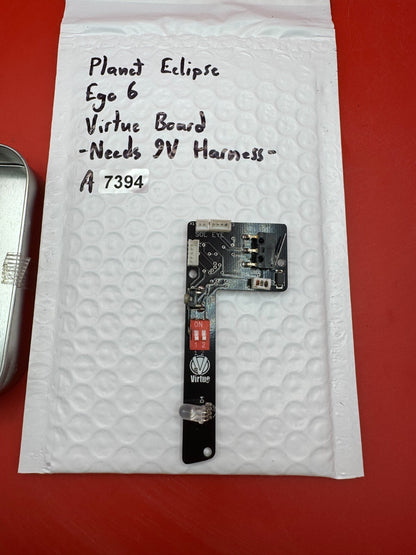 Planet Eclipse
Ego 6
Virtue Board
-Needs 9V Harness-
A 7394
SOL EYE
ON
1 2
Virtue